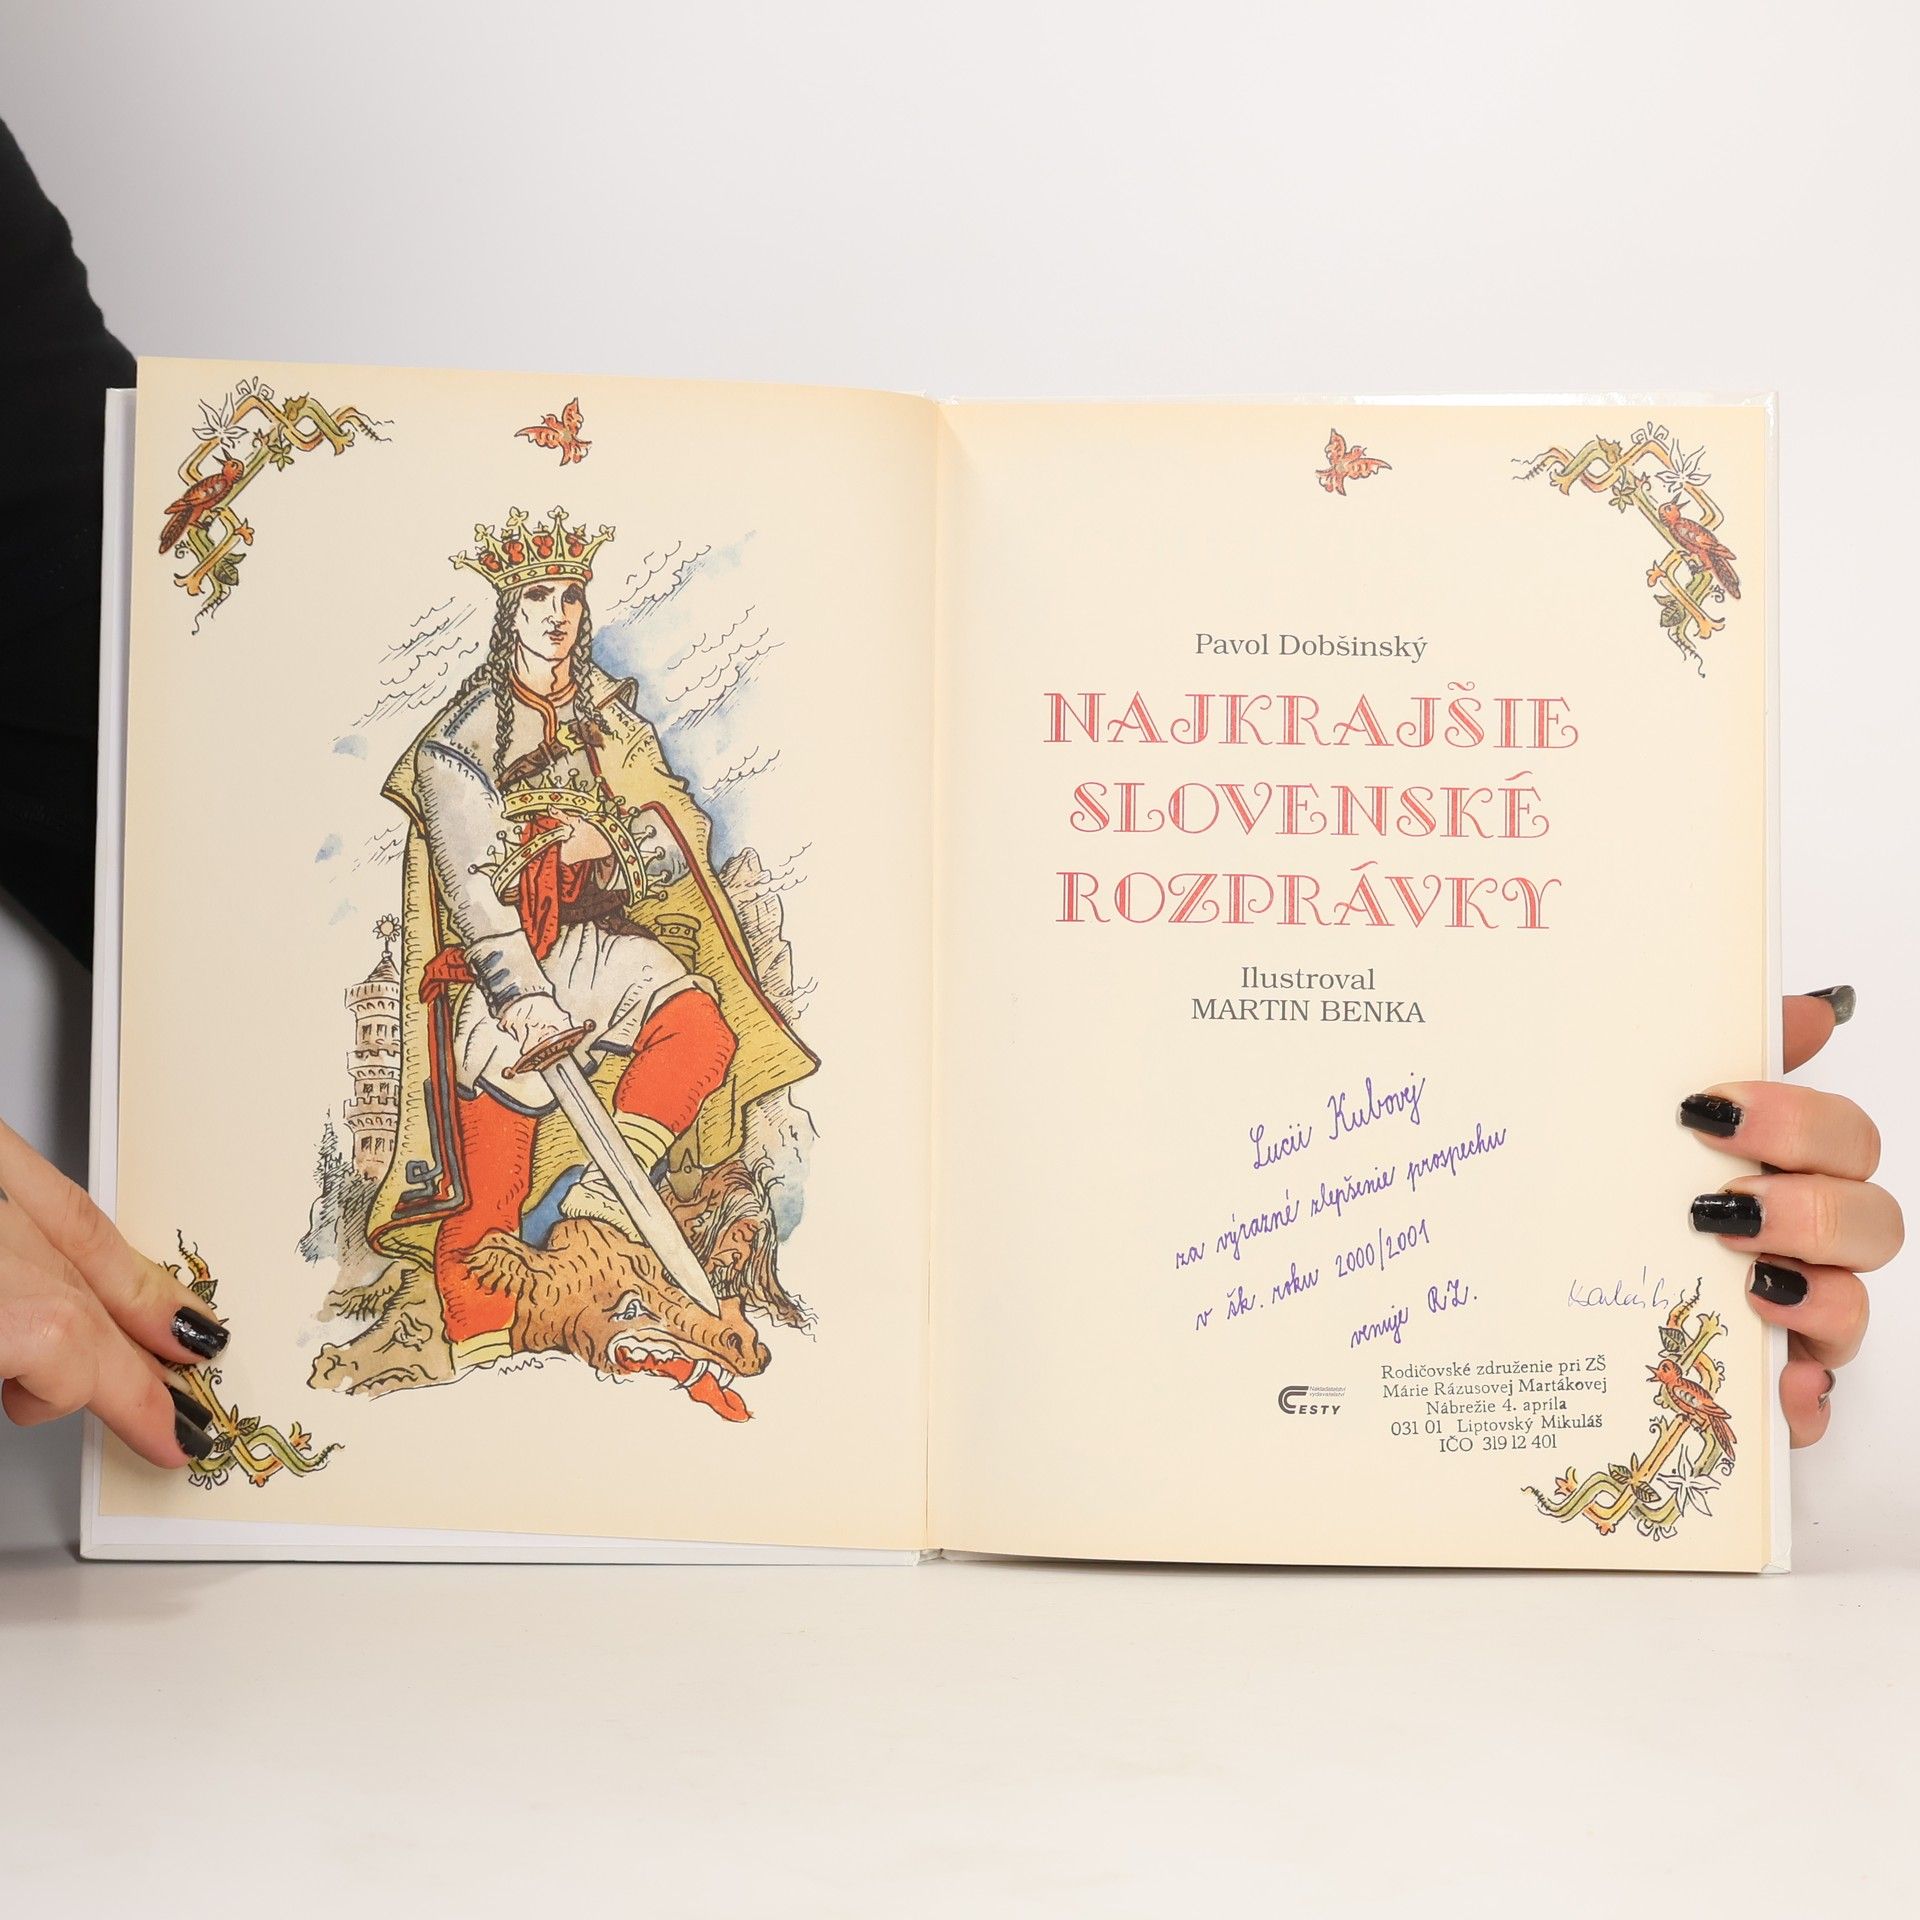 Pavol Dobšinský
NAJKRAJŠIE
SLOVENSKÉ
ROZPRÁVKY
Ilustroval
MARTIN BENKA
Lucii Kubovej
za výrazné zlepšenie prospechu
v šk. roku 2000/2001
venuje RZ.
Nakladatelství
vydavateľstvo
CESTY
Rodičovské združenie pri ZŠ
Márie Rázusovej Martákovej
Nábrežie 4. apríla
031 01 Liptovský Mikuláš
IČO 319 12 401